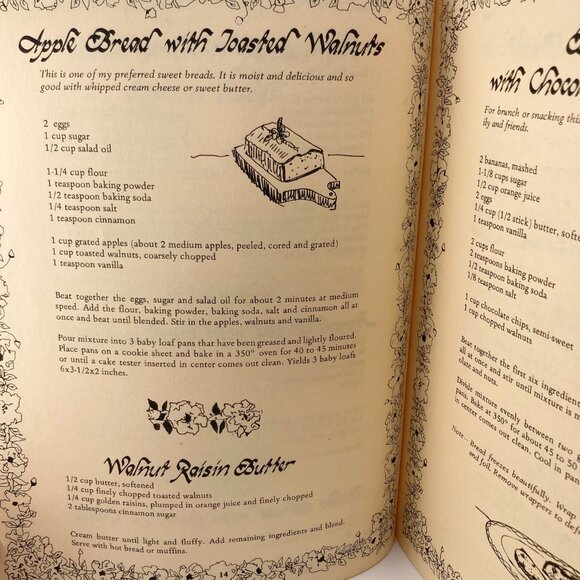 Apple Bread with Toasted Walnuts
This is one of my preferred sweet breads. It is moist and delicious and so
good with whipped cream cheese or sweet butter.
2 eggs
1 cup sugar
1/2 cup salad oil
1-1/4 cup flour
1 teaspoon baking powder
1/2 teaspoon baking soda
1/4 teaspoon salt
1 teaspoon cinnamon
1 cup grated apples (about 2 medium apples, peeled, cored and grated)
1 cup toasted walnuts, coarsely chopped
1 teaspoon vanilla
Beat together the eggs, sugar and salad oil for about 2 minutes at medium
speed. Add the flour, baking powder, baking soda, salt and cinnamon all at
once and beat until blended. Stir in the apples, walnuts and vanilla.
Pour mixture into 3 baby loaf pans that have been greased and lightly floured.
Place pans on a cookie sheet and bake in a 350° oven for 40 to 45 minutes
or until a cake tester inserted in center comes out clean. Yields 3 baby loafs
6x3-1/2x2 inches.
Walnut Raisin Butter
1/2 cup butter, softened
1/4 cup finely chopped toasted walnuts
1/4 cup golden raisins, plumped in orange juice and finely chopped
2 tablespoons cinnamon sugar
Cream butter until light and fluffy. Add remaining ingredients and blend.
Serve with hot bread or muffins.
14
with
For brunch or snacking
ily and friends.
2 bananas, mashed
1-1/8 cups sugar
1/2 cup orange juice
2 eggs
1/4 cup (1/2 stick) butter,
1 teaspoon vanilla
2 cups flour
2 teaspoons baking powder
1/2 teaspoon baking soda
1/8 teaspoon salt
1 cup chocolate chips, semi-sweet
1 cup chopped walnuts
Beat together the first six
all at once and stir until mixture is
olate and nuts.
Divide mixture evenly between two
pans. Bake at 350° for about 45 to 50
in center comes out clean. Cool in
Note: Bread freezes beautifully. Wrap
and foil. Remove wrappers to